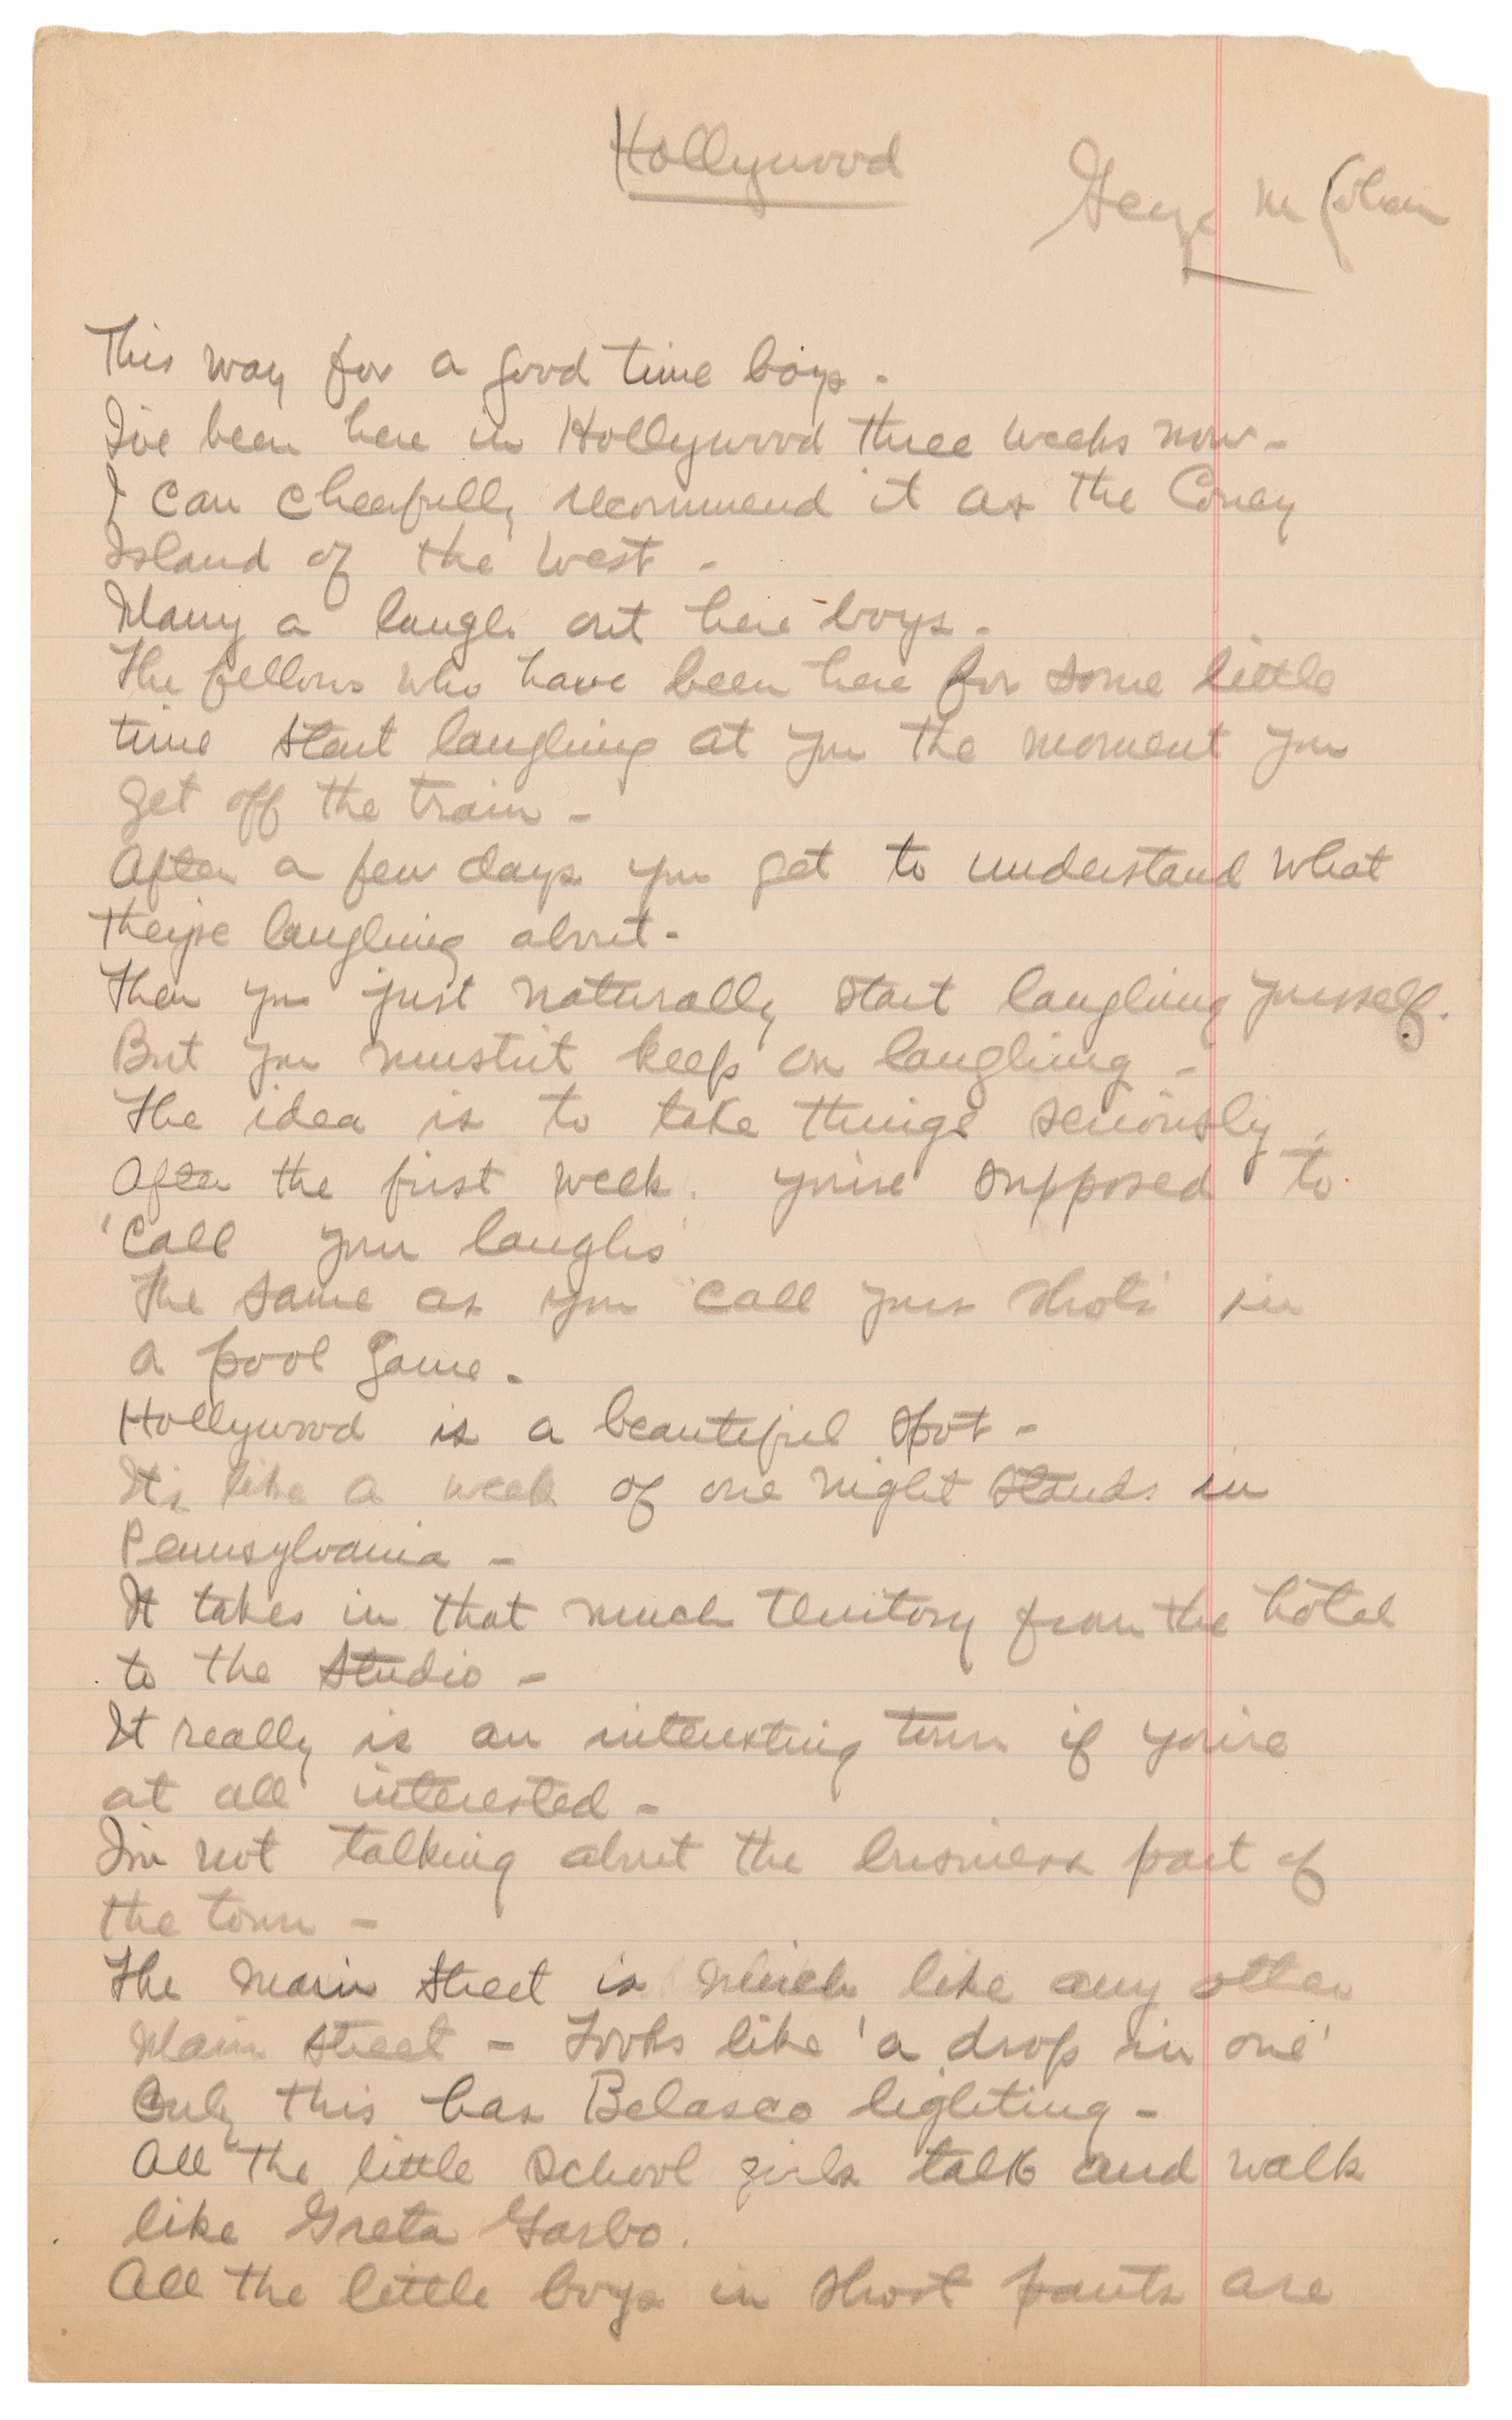 Hollywood
George M Cohan
This way for a good time boys -
I've been here in Hollywood three weeks now -
I can cheerfully recommend it as the Coney
Island of the West -
Many a laugh out here boys -
The fellows who have been here for some little
time start laughing at you the moment you
get off the train -
After a few days you get to understand what
they're laughing about -
Then you just naturally start laughing yourself.
But you mustn't keep on laughing -
The idea is to take things seriously.
After the first week. you're supposed to
'Call your laughs'
The same as you 'call your shots' in
a pool game -
Hollywood is a beautiful spot -
It's like a week of one night stands in
Pennsylvania -
It takes in that much territory from the hotel
to the studio -
It really is an interesting town if you're
at all interested -
I'm not talking about the business part of
the town -
The main street is much like any other
Main street - Looks like 'a drop in one'
Only this has Belasco lighting -
All the little school girls talk and walk
like Greta Garbo.
All the little boys in short pants are